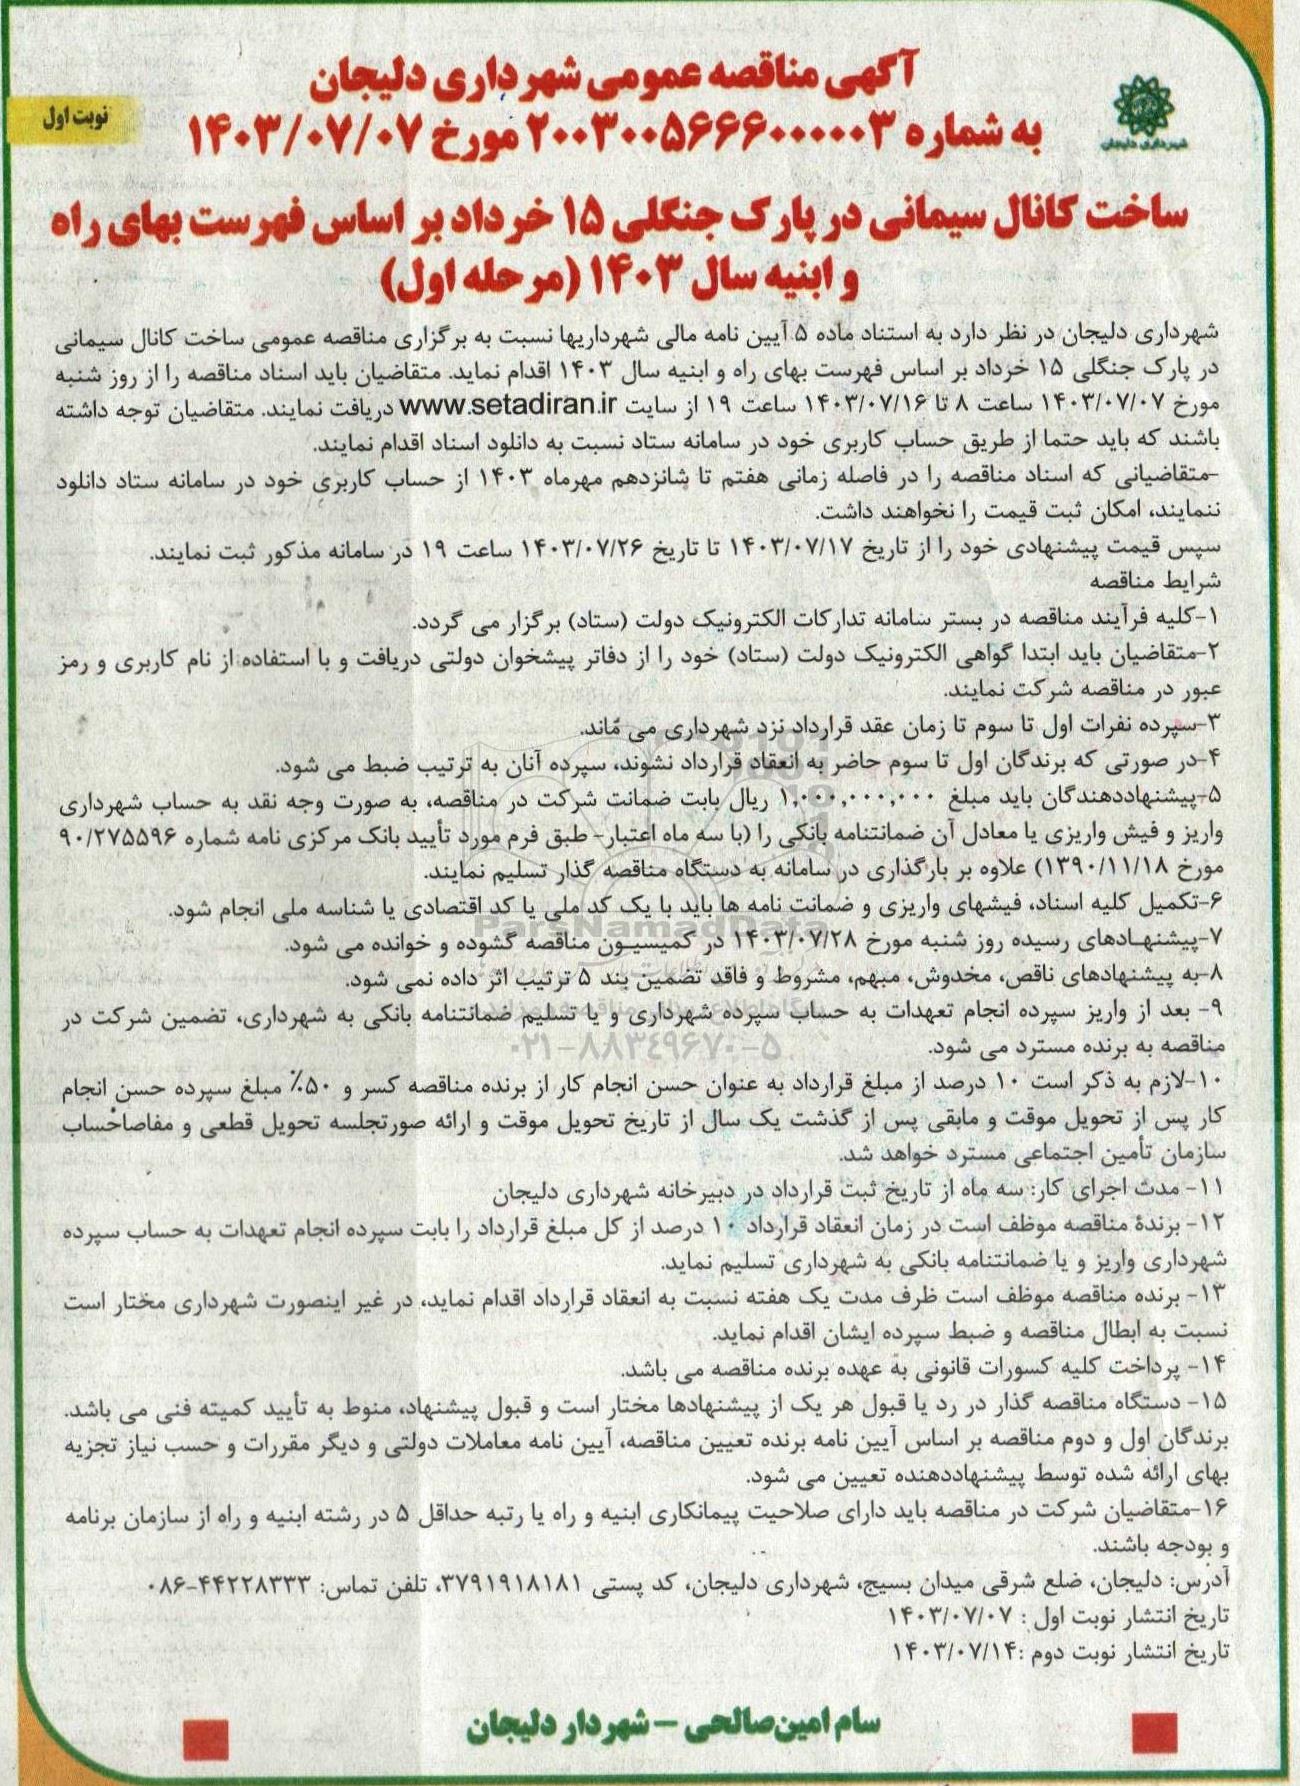 آگهی مناقصه عمومی شهرداری دلیجان
به شماره ۲۰۰۳۰۰۵۶۶۶۰۰۰۰۰۳ مورخ ۱۴۰۳/۰۷/۰۷
نوبت اول
شهرداری دلیجان
ساخت کانال سیمانی در پارک جنگلی ۱۵ خرداد بر اساس فهرست بهای راه
و ابنیه سال ۱۴۰۳ (مرحله اول)
شهرداری دلیجان در نظر دارد به استناد ماده ۵ آیین نامه مالی شهرداریها نسبت به برگزاری مناقصه عمومی ساخت کانال سیمانی
در پارک جنگلی ۱۵ خرداد بر اساس فهرست بهای راه و ابنیه سال ۱۴۰۳ اقدام نماید. متقاضیان باید اسناد مناقصه را از روز شنبه
مورخ ۱۴۰۳/۰۷/۰۷ ساعت ۸ تا ۱۴۰۳/۰۷/۱۶ ساعت ۱۹ از سایت www.setadiran.ir دریافت نمایند. متقاضیان توجه داشته
باشند که باید حتما از طریق حساب کاربری خود در سامانه ستاد نسبت به دانلود اسناد اقدام نمایند.
-متقاضیانی که اسناد مناقصه را در فاصله زمانی هفتم تا شانزدهم مهرماه ۱۴۰۳ از حساب کاربری خود در سامانه ستاد دانلود
ننمایند، امکان ثبت قیمت را نخواهند داشت.
سپس قیمت پیشنهادی خود را از تاریخ ۱۴۰۳/۰۷/۱۷ تا تاریخ ۱۴۰۳/۰۷/۲۶ ساعت ۱۹ در سامانه مذکور ثبت نمایند.
شرایط مناقصه
۱-کلیه فرآیند مناقصه در بستر سامانه تدارکات الکترونیک دولت (ستاد) برگزار می گردد.
۲-متقاضیان باید ابتدا گواهی الکترونیک دولت (ستاد) خود را از دفاتر پیشخوان دولتی دریافت و با استفاده از نام کاربری و رمز
عبور در مناقصه شرکت نمایند.
۳-سپرده نفرات اول تا سوم تا زمان عقد قرارداد نزد شهرداری می ماند.
۴-در صورتی که برندگان اول تا سوم حاضر به انعقاد قرارداد نشوند، سپرده آنان به ترتیب ضبط می شود.
۵-پیشنهاددهندگان باید مبلغ ۱,۰۰۰,۰۰۰,۰۰۰ ریال بابت ضمانت شرکت در مناقصه، به صورت وجه نقد به حساب شهرداری
واریز و فیش واریزی یا معادل آن ضمانتنامه بانکی را (با سه ماه اعتبار- طبق فرم مورد تأیید بانک مرکزی نامه شماره ۹۰/۲۷۵۵۹۶
مورخ ۱۳۹۰/۱۱/۱۸) علاوه بر بارگذاری در سامانه به دستگاه مناقصه گذار تسلیم نمایند.
۶-تکمیل کلیه اسناد، فیشهای واریزی و ضمانت نامه ها باید با یک کد ملی یا کد اقتصادی یا شناسه ملی انجام شود.
ParsNamadData
۷-پیشنهادهای رسیده روز شنبه مورخ ۱۴۰۳/۰۷/۲۸ در کمیسیون مناقصه گشوده و خوانده می شود.
۸-به پیشنهادهای ناقص، مخدوش، مبهم، مشروط و فاقد تضمین بند ۵ ترتیب اثر داده نمی شود.
۹- بعد از واریز سپرده انجام تعهدات به حساب سپرده شهرداری و یا تسلیم ضمانتنامه بانکی به شهرداری، تضمین شرکت در
مناقصه به برنده مسترد می شود.
۰۲۱-۸۸۳۴۹۶۷۰-۵
۱۰-لازم به ذکر است ۱۰ درصد از مبلغ قرارداد به عنوان حسن انجام کار از برنده مناقصه کسر و ۵۰٪ مبلغ سپرده حسن انجام
کار پس از تحویل موقت و مابقی پس از گذشت یک سال از تاریخ تحویل موقت و ارائه صورتجلسه تحویل قطعی و مفاصاحساب
سازمان تأمین اجتماعی مسترد خواهد شد.
۱۱- مدت اجرای کار: سه ماه از تاریخ ثبت قرارداد در دبیرخانه شهرداری دلیجان
۱۲- برندۀ مناقصه موظف است در زمان انعقاد قرارداد ۱۰ درصد از کل مبلغ قرارداد را بابت سپرده انجام تعهدات به حساب سپرده
شهرداری واریز و یا ضمانتنامه بانکی به شهرداری تسلیم نماید.
۱۳- برنده مناقصه موظف است ظرف مدت یک هفته نسبت به انعقاد قرارداد اقدام نماید، در غیر اینصورت شهرداری مختار است
نسبت به ابطال مناقصه و ضبط سپرده ایشان اقدام نماید.
۱۴- پرداخت کلیه کسورات قانونی به عهده برنده مناقصه می باشد.
۱۵- دستگاه مناقصه گذار در رد یا قبول هر یک از پیشنهادها مختار است و قبول پیشنهاد، منوط به تأیید کمیته فنی می باشد.
برندگان اول و دوم مناقصه بر اساس آیین نامه برنده تعیین مناقصه، آیین نامه معاملات دولتی و دیگر مقررات و حسب نیاز تجزیه
بهای ارائه شده توسط پیشنهاددهنده تعیین می شود.
۱۶-متقاضیان شرکت در مناقصه باید دارای صلاحیت پیمانکاری ابنیه و راه یا رتبه حداقل ۵ در رشته ابنیه و راه از سازمان برنامه
و بودجه باشند.
آدرس: دلیجان، ضلع شرقی میدان بسیج، شهرداری دلیجان، کد پستی ۳۷۹۱۹۱۸۱۸۱، تلفن تماس: ۴۴۲۲۸۳۳۳-۰۸۶
تاریخ انتشار نوبت اول : ۱۴۰۳/۰۷/۰۷
تاریخ انتشار نوبت دوم :۱۴۰۳/۰۷/۱۴
سام امین‌صالحی – شهردار دلیجان